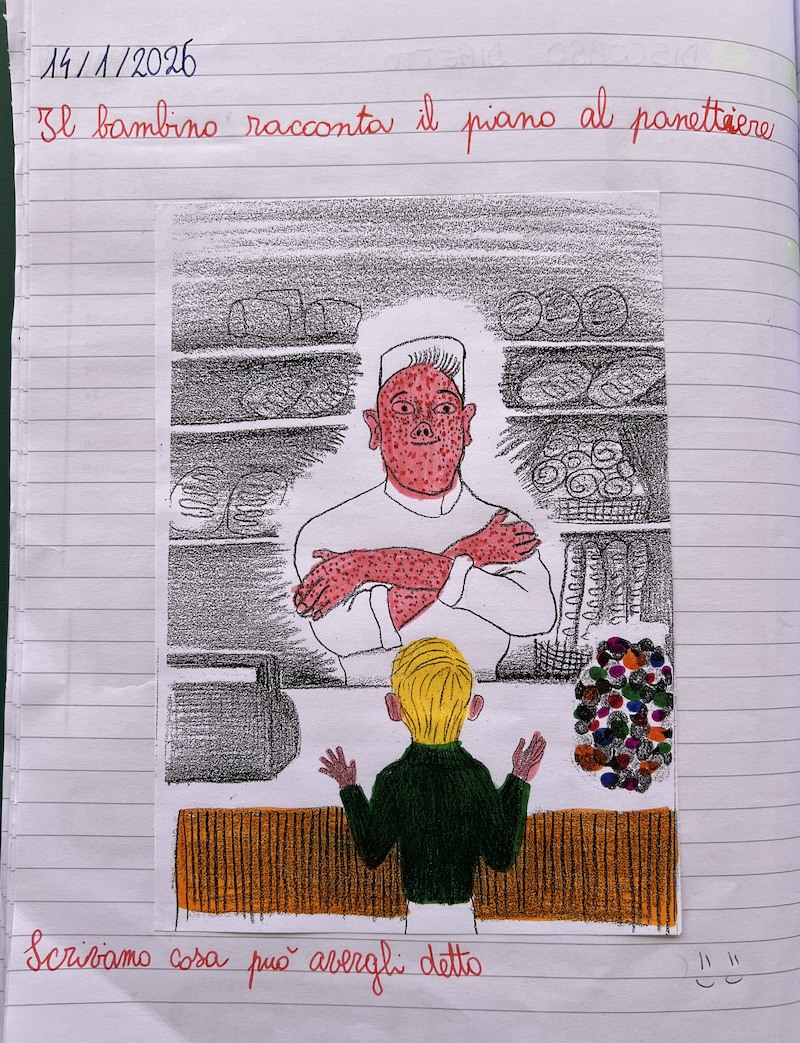 14/1/2026
Il bambino racconta il piano al panettiere
Scrivamo cosa può avergli detto